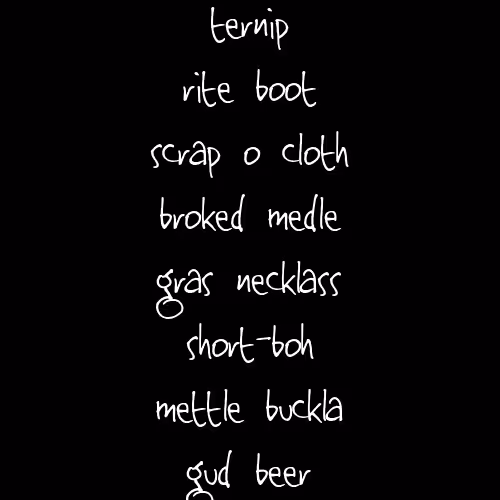 ternip
rite boot
scrap o cloth
broked medle
gras necklass
short-boh
mettle buckla
gud beer